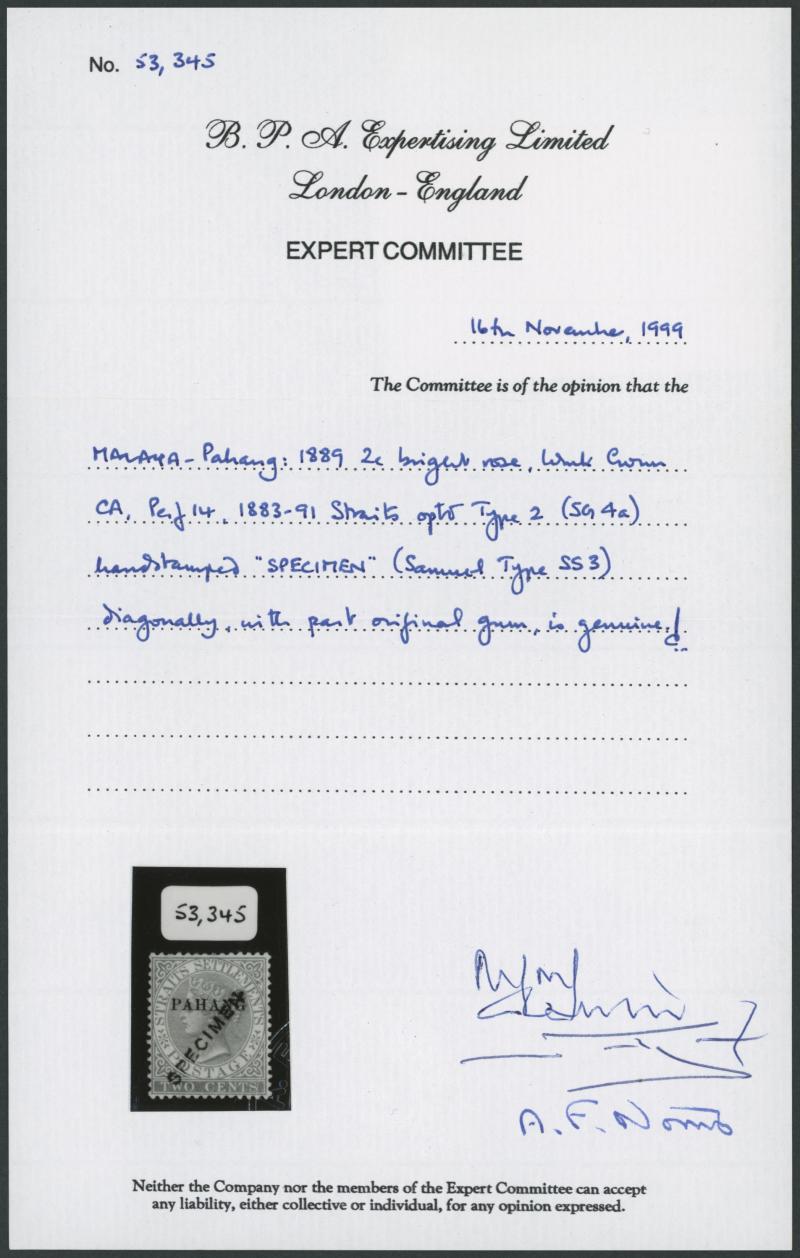 No. 53,345
B. P. A. Expertising Limited
London - England
EXPERT COMMITTEE
16th November, 1999
The Committee is of the opinion that the
MALAYA - Pahang: 1889 2c bright rose, Wmk Crown
CA, Perf 14, 1883-91 Straits optd Type 2 (SG 4a)
handstamped "SPECIMEN" (Samuel Type SS3)
diagonally, with part original gum, is genuine.
53,345
STRAITS SETTLEMENTS
PAHANG
SPECIMEN
POSTAGE
TWO CENTS
A. F. Norris
Neither the Company nor the members of the Expert Committee can accept
any liability, either collective or individual, for any opinion expressed.